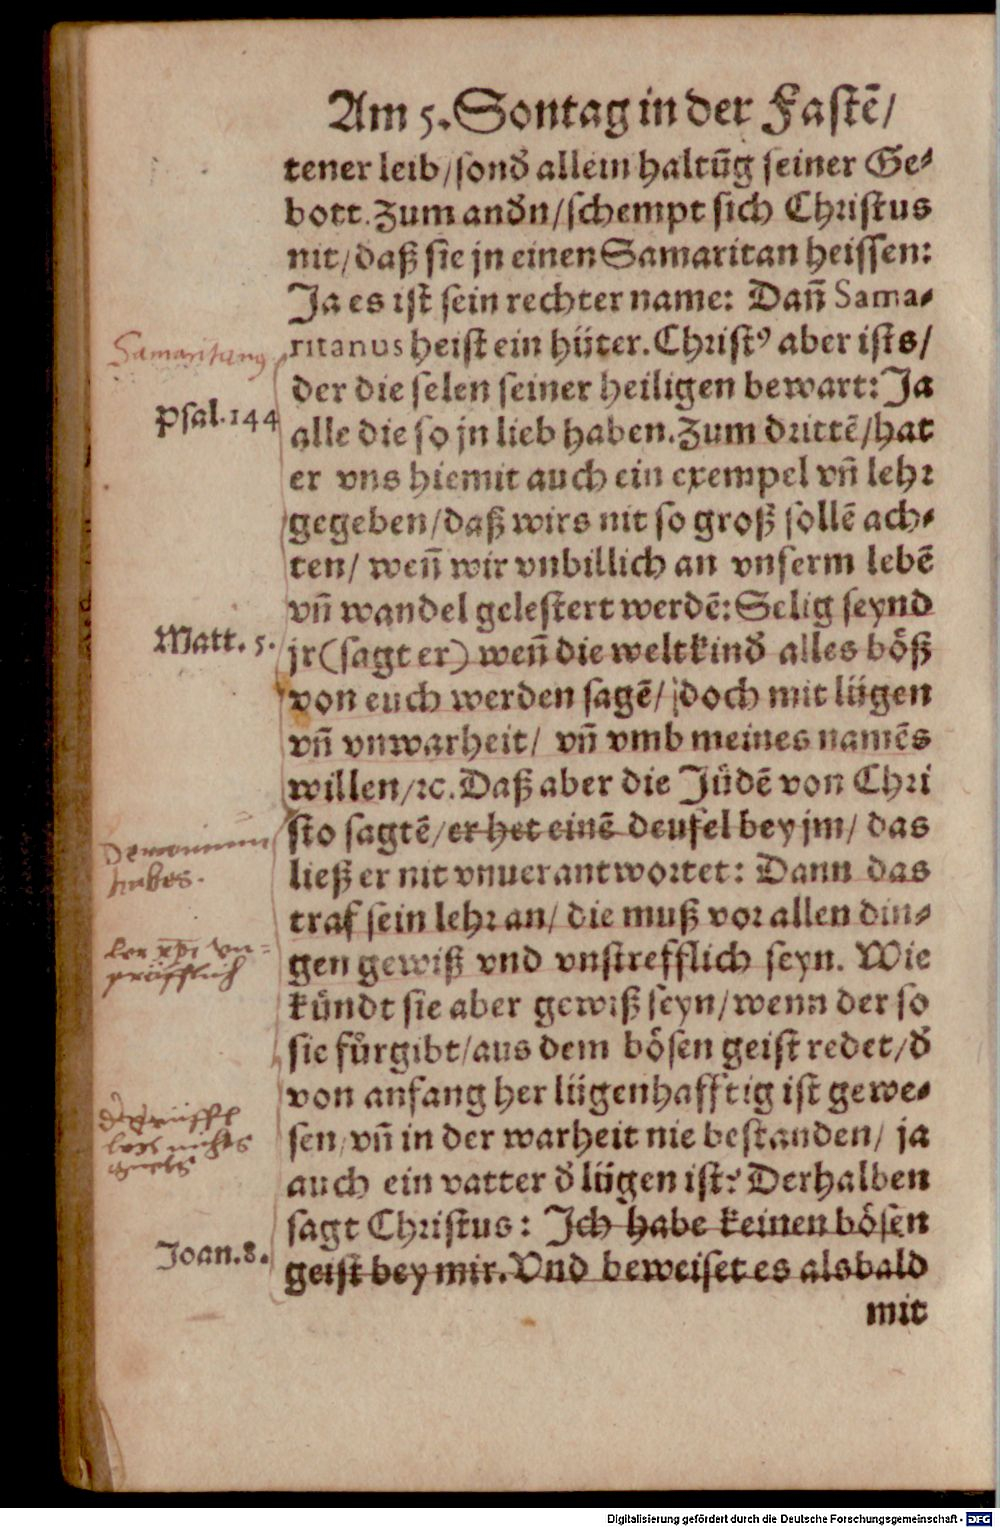 Am 5. Sontag in der Fastẽ/
tener leib/sond̓ allein haltũg seiner Ge⸗
bott. Zum and̓n/schempt sich Christus
nit/daß sie jn einen Samaritan heissen:
Ja es ist sein rechter name: Dañ Sama⸗
Samaritanus
ritanus heist ein hüter. Christꝰ aber ists/
der die selen seiner heiligen bewart: Ja
Psal.144
alle die so jn lieb haben. Zum drittẽ/hat
er vns hiemit auch ein exempel vñ lehr
gegeben/daß wirs nit so groß sollẽ ach⸗
ten/ weñ wir vnbillich an vnserm lebẽ
vñ wandel gelestert werdẽ: Selig seynd
Matt. 5.
jr (sagt er) weñ die weltkind̓ alles böß
von euch werden sagẽ/ jdoch mit lügen
vñ vnwarheit/ vñ vmb meines namẽs
willen/ꝛc. Daß aber die Jüdẽ von Chri
Demonium
sto sagtẽ/er het einẽ deufel bey jm/ das
habes.
ließ er nit vnuerantwortet: Dann das
traf sein lehr an/ die muß vor allen din⸗
ler xpi vn⸗
gen gewiß vnd vnstrefflich seyn. Wie
sträfflich
kündt sie aber gewiß seyn/wenn der so
sie fürgibt/aus dem bösen geist redet/d̓
von anfang her lügenhafftig ist gewe⸗
sen/vñ in der warheit nie bestanden/ ja
nichts
auch ein vatter d̓ lügen ist? Derhalben
sagt Christus: Ich habe keinen bösen
Joan.8.
geist bey mir. Vnd beweiset es alsbald
mit
Digitalisierung gefördert durch die Deutsche Forschungsgemeinschaft - DFG